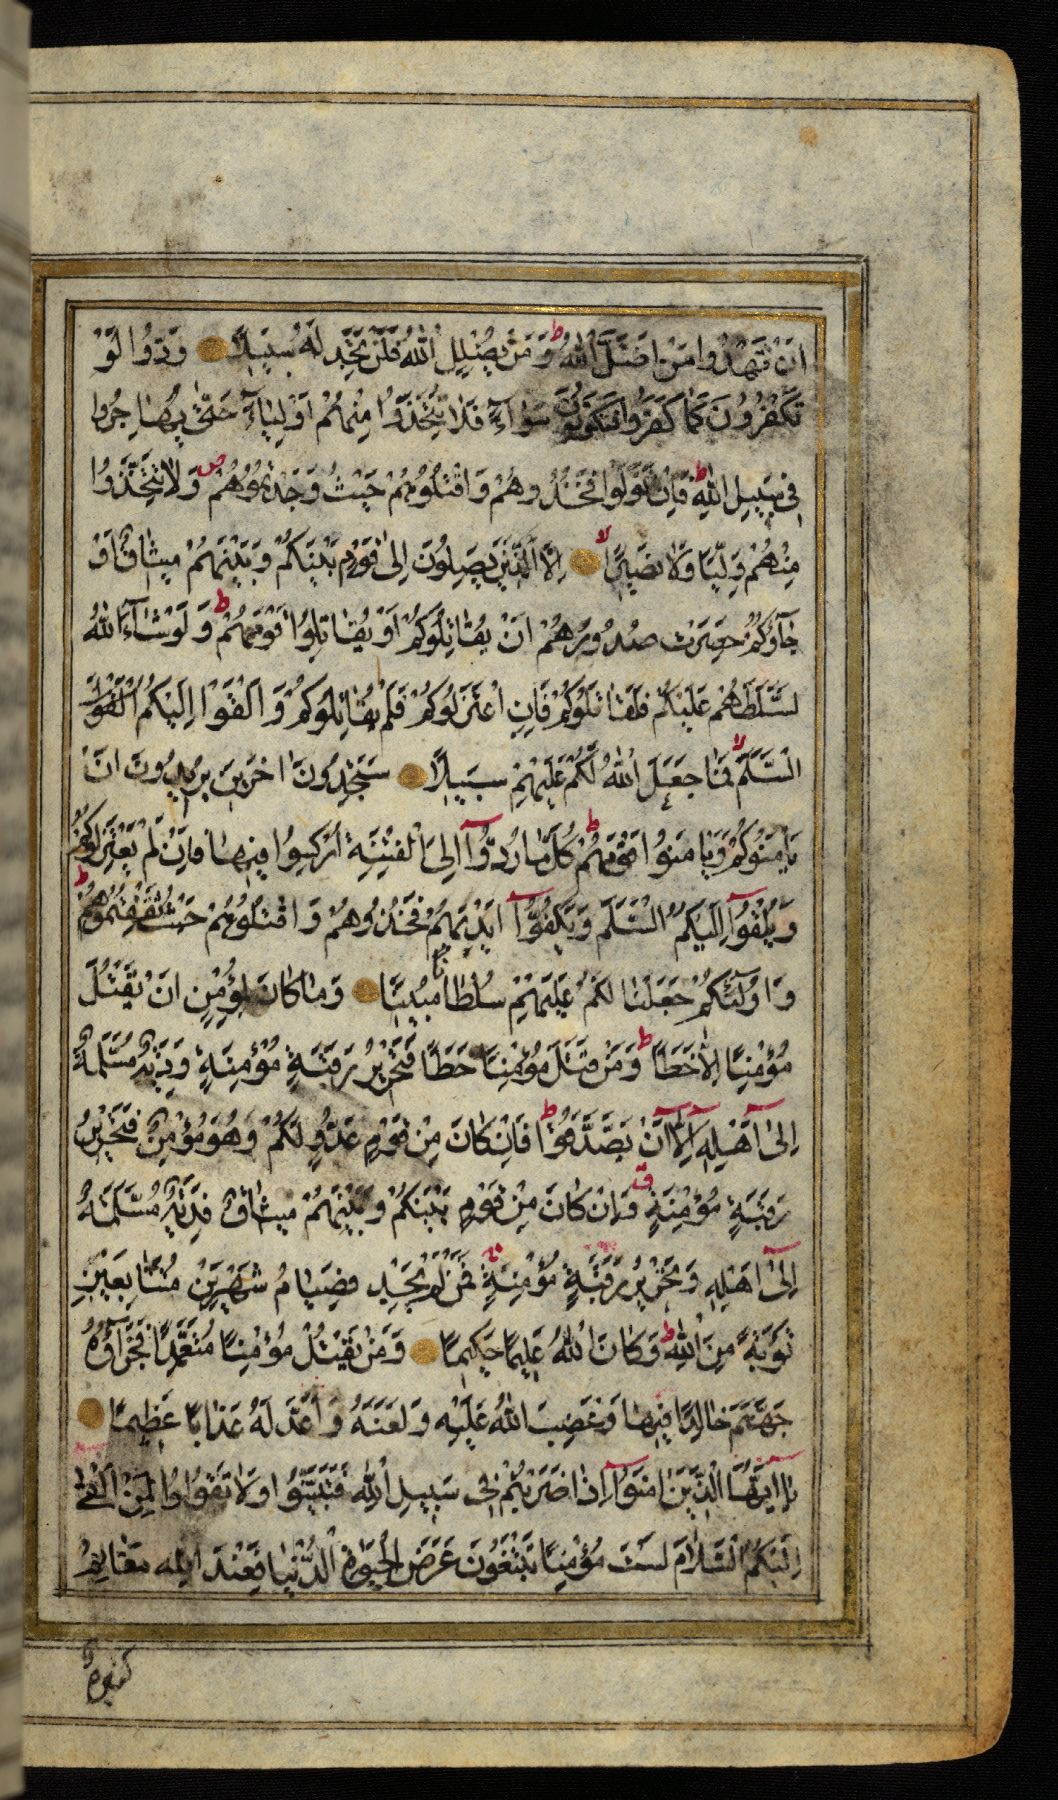 اَنْ تَهْدُوا مَنْ اَضَلَّ اللهُ ط وَمَنْ يُضْلِلِ اللهُ فَلَنْ تَجِدَ لَهُ سَبِيلًا وَدُّوا لَوْ
تَكْفُرُونَ كَمَا كَفَرُوا فَتَكُونُونَ سَوَآءً فَلَا تَتَّخِذُوا مِنْهُمْ اَوْلِيَآءَ حَتّٰى يُهَاجِرُوا
فِى سَبِيلِ اللهِ ط فَاِنْ تَوَلَّوْا فَخُذُوهُمْ وَاقْتُلُوهُمْ حَيْثُ وَجَدْتُمُوهُمْ ص وَلَا تَتَّخِذُوا
مِنْهُمْ وَلِيًّا وَلَا نَصِيرًا لا اِلَّا الَّذِينَ يَصِلُونَ اِلٰى قَوْمٍ بَيْنَكُمْ وَبَيْنَهُمْ مِيثَاقٌ اَوْ
جَآؤُكُمْ حَصِرَتْ صُدُورُهُمْ اَنْ يُقَاتِلُوكُمْ اَوْ يُقَاتِلُوا قَوْمَهُمْ ط وَلَوْ شَآءَ اللهُ
لَسَلَّطَهُمْ عَلَيْكُمْ فَلَقَاتَلُوكُمْ فَاِنِ اعْتَزَلُوكُمْ فَلَمْ يُقَاتِلُوكُمْ وَاَلْقَوْا اِلَيْكُمُ اَلْقَوْا
السَّلَمَ لا فَمَا جَعَلَ اللهُ لَكُمْ عَلَيْهِمْ سَبِيلًا سَتَجِدُونَ اٰخَرِينَ يُرِيدُونَ اَنْ
يَاْمَنُوكُمْ وَيَاْمَنُوا قَوْمَهُمْ ط كُلَّمَا رُدُّوٓا اِلَى الْفِتْنَةِ اُرْكِسُوا فِيهَا فَاِنْ لَمْ يَعْتَزِلُوكُمْ
وَيُلْقُوٓا اِلَيْكُمُ السَّلَمَ وَيَكُفُّوٓا اَيْدِيَهُمْ فَخُذُوهُمْ وَاقْتُلُوهُمْ حَيْثُ ثَقِفْتُمُوهُمْ ط
وَاُولٰٓئِكُمْ جَعَلْنَا لَكُمْ عَلَيْهِمْ سُلْطَانًا مُبِينًا وَمَا كَانَ لِمُؤْمِنٍ اَنْ يَقْتُلَ
مُؤْمِنًا اِلَّا خَطَأً ط وَمَنْ قَتَلَ مُؤْمِنًا خَطَأً فَتَحْرِيرُ رَقَبَةٍ مُؤْمِنَةٍ وَدِيَةٌ مُسَلَّمَةٌ
اِلٰىٓ اَهْلِهٓ اِلَّآ اَنْ يَصَّدَّقُوا ط فَاِنْ كَانَ مِنْ قَوْمٍ عَدُوٍّ لَكُمْ وَهُوَ مُؤْمِنٌ فَتَحْرِيرُ
رَقَبَةٍ مُؤْمِنَةٍ وَاِنْ كَانَ مِنْ قَوْمٍ بَيْنَكُمْ وَبَيْنَهُمْ مِيثَاقٌ فَدِيَةٌ مُسَلَّمَةٌ
اِلٰىٓ اَهْلِهِ وَتَحْرِيرُ رَقَبَةٍ مُؤْمِنَةٍ فَمَنْ لَمْ يَجِدْ فَصِيَامُ شَهْرَيْنِ مُتَتَابِعَيْنِ
تَوْبَةً مِنَ اللهِ ط وَكَانَ اللهُ عَلِيمًا حَكِيمًا وَمَنْ يَقْتُلْ مُؤْمِنًا مُتَعَمِّدًا فَجَزَآؤُهُ
جَهَنَّمُ خَالِدًا فِيهَا وَغَضِبَ اللهُ عَلَيْهِ وَلَعَنَهُ وَاَعَدَّ لَهُ عَذَابًا عَظِيمًا
يَآ اَيُّهَا الَّذِينَ اٰمَنُوٓا اِذَا ضَرَبْتُمْ فِى سَبِيلِ اللهِ فَتَبَيَّنُوا وَلَا تَقُولُوا لِمَنْ اَلْقٰىٓ
اِلَيْكُمُ السَّلَامَ لَسْتَ مُؤْمِنًا تَبْتَغُونَ عَرَضَ الْحَيٰوةِ الدُّنْيَا فَعِنْدَ اللهِ مَغَانِمُ
كَثِيرَةٌ